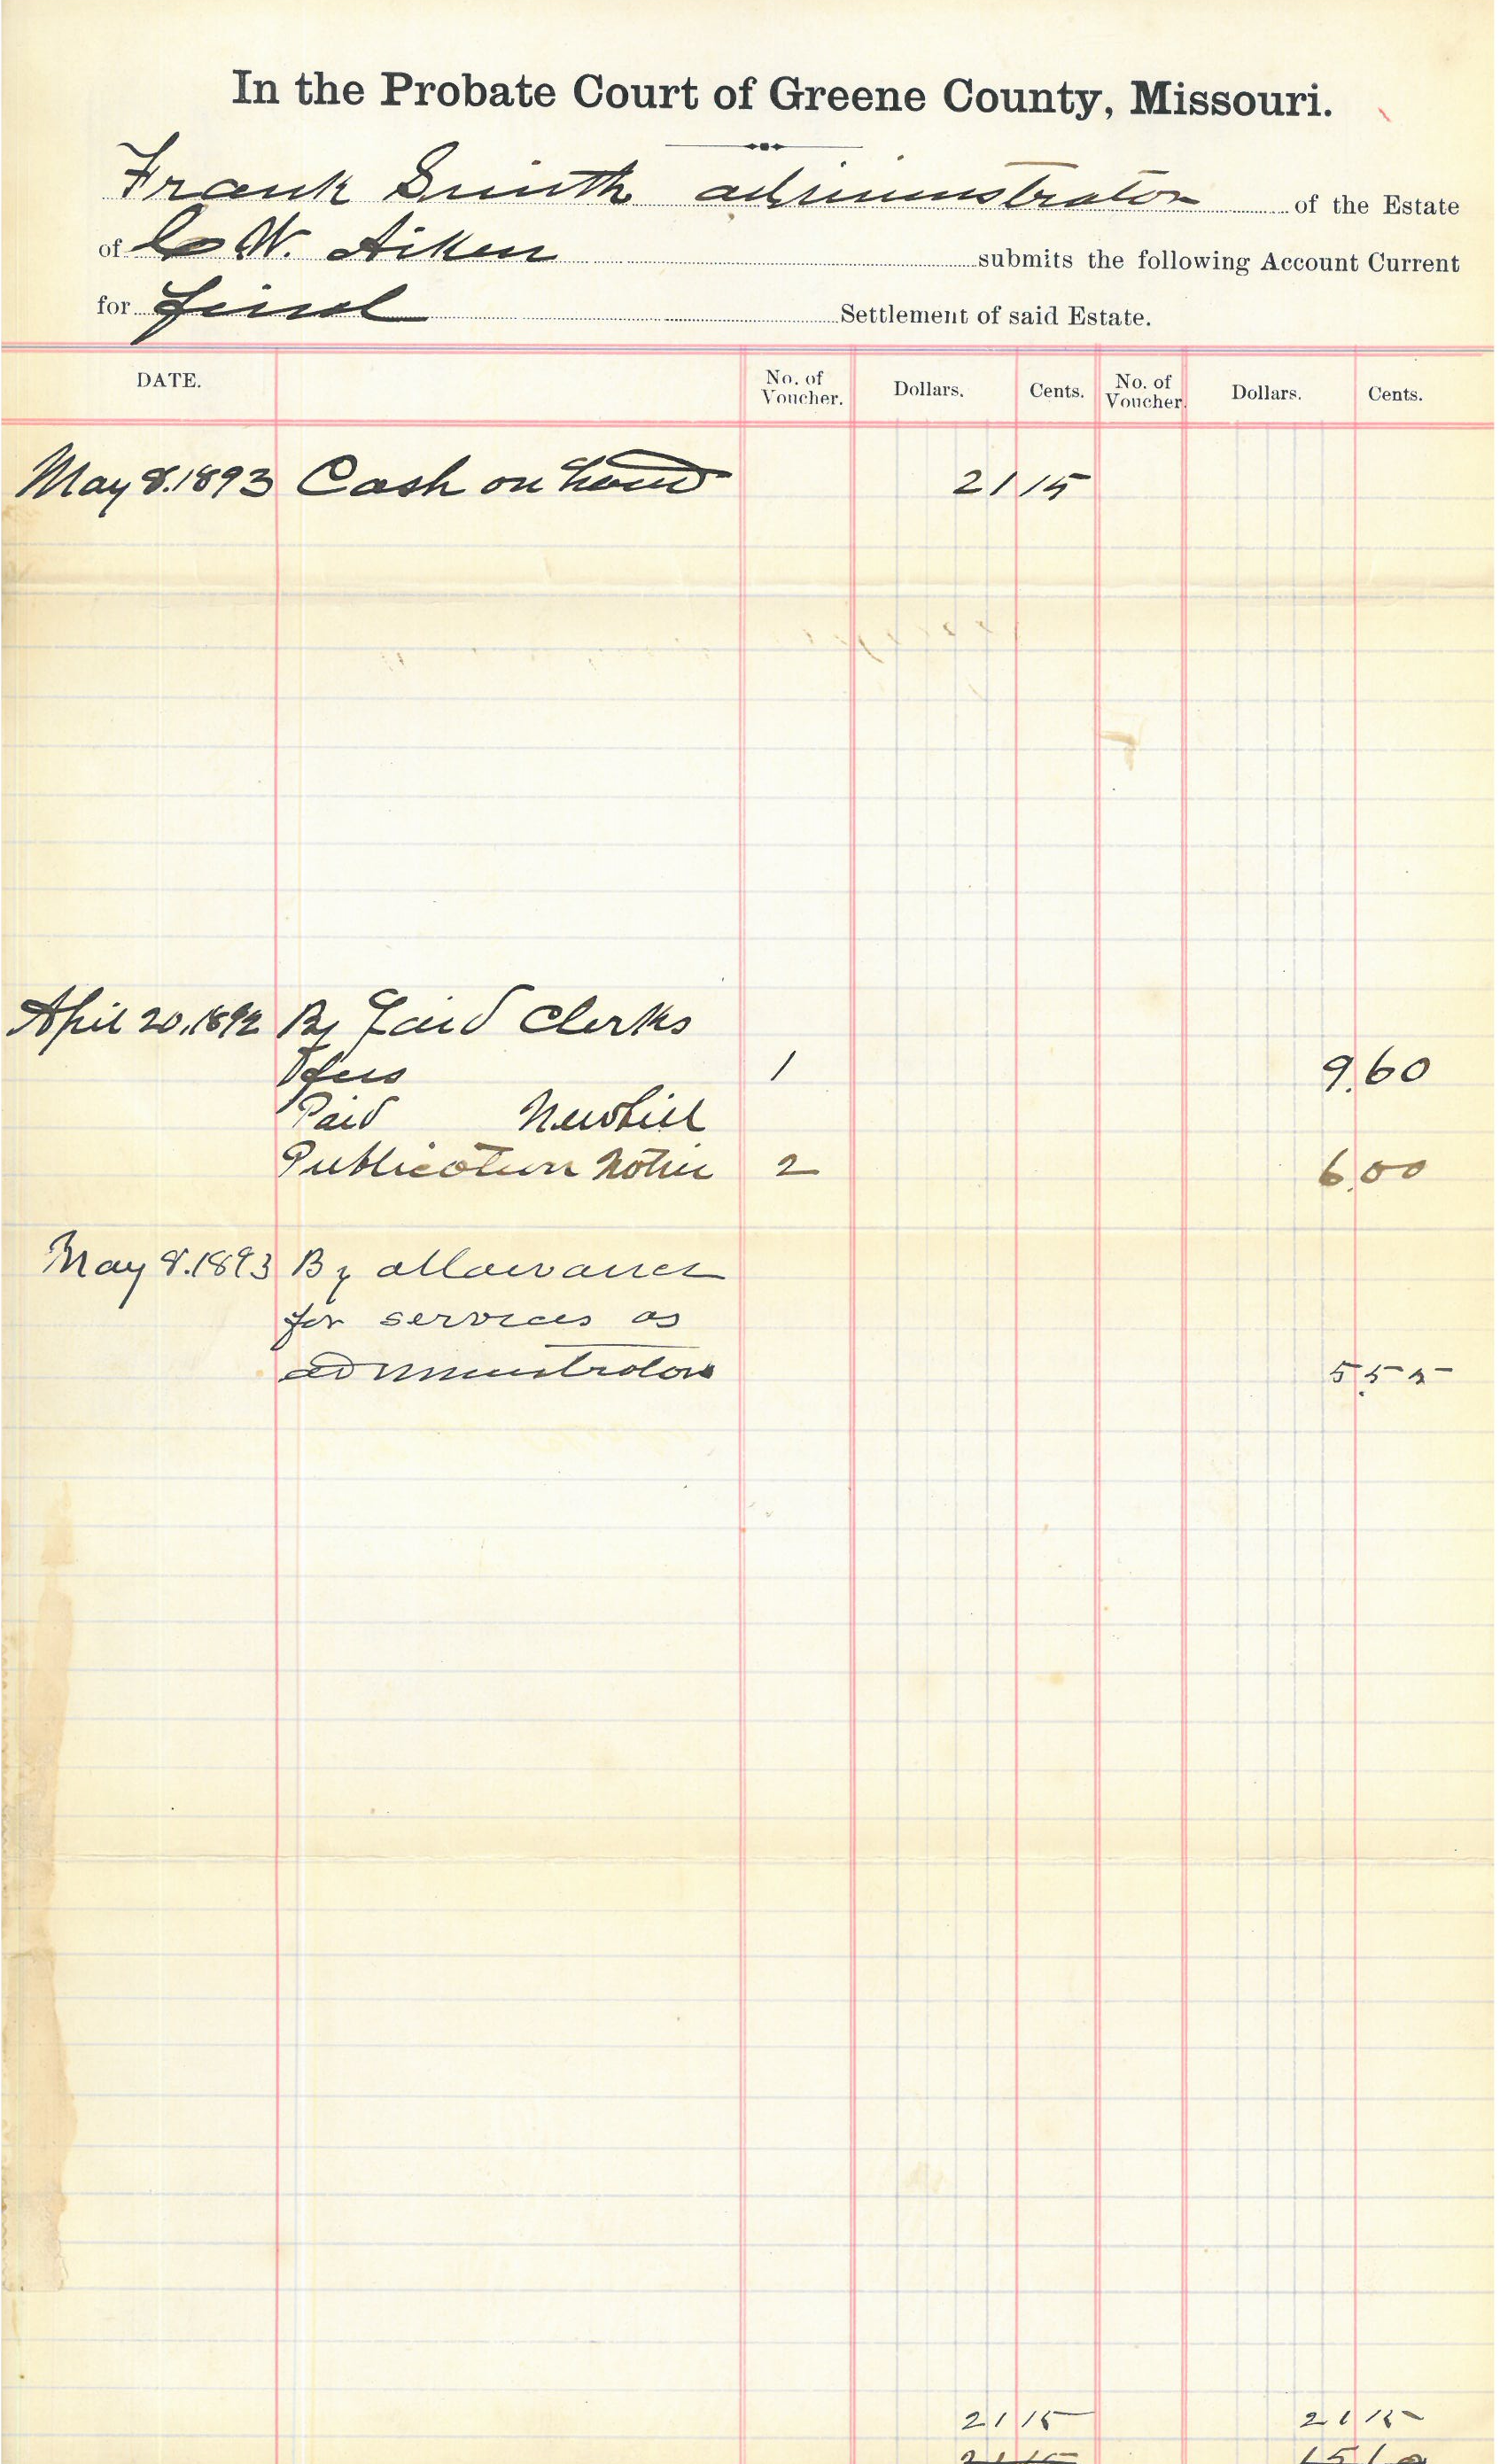 In the Probate Court of Greene County, Missouri.
Frank Smith administrator of the Estate
of C W. Aiken submits the following Account Current
for final Settlement of said Estate.
DATE. No. of Voucher. Dollars. Cents. No. of Voucher. Dollars. Cents.
May 8. 1893 Cash on hand 21 15
April 20, 1892 By Paid Clerks
fees 1 9.60
Paid Newbill
Publication Notice 2 6.00
May 8. 1893 By allowance
for services as
administrator 5.55
21 15 21 15
21 15 15 60